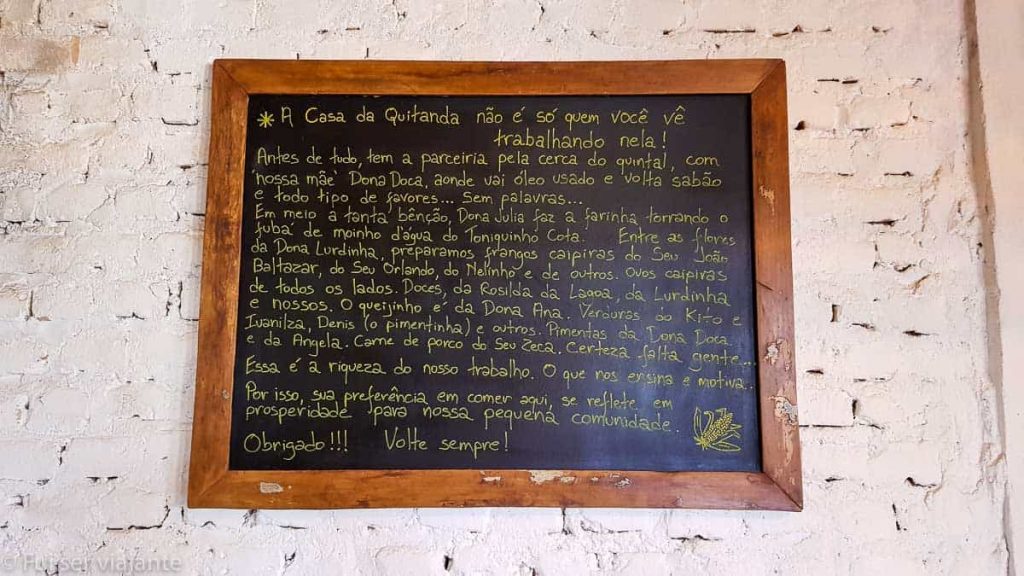 * A Casa da Quitanda não é só quem você vê
trabalhando nela!
Antes de tudo, tem a parceiria pela cerca do quintal, com
'nossa mãe' Dona Doca, aonde vai óleo usado e volta sabão
e todo tipo de favores... Sem palavras...
Em meio à tanta bênção, Dona Julia faz a farinha torrando o
fubá de moinho d'água do Toniquinho Cota. Entre as flores
da Dona Lurdinha, preparamos frangos caipiras do Seu João
Baltazar, do Seu Orlando, do Nelinho e de outros. Ovos caipiras
de todos os lados. Doces, da Rosilda da Lagoa, da Lurdinha
e nossos. O queijinho é da Dona Ana. Verduras do Kito e
Ivanilza, Denis (o pimentinha) e outros. Pimentas da Dona Doca
e da Angela. Carne de porco do Seu Zeca. Certeza falta gente...
Essa é a riqueza do nosso trabalho. O que nos ensina e motiva...
Por isso, sua preferência em comer aqui, se reflete em
prosperidade para nossa pequena comunidade.
Obrigado!!! Volte sempre!
© Fui ser viajante